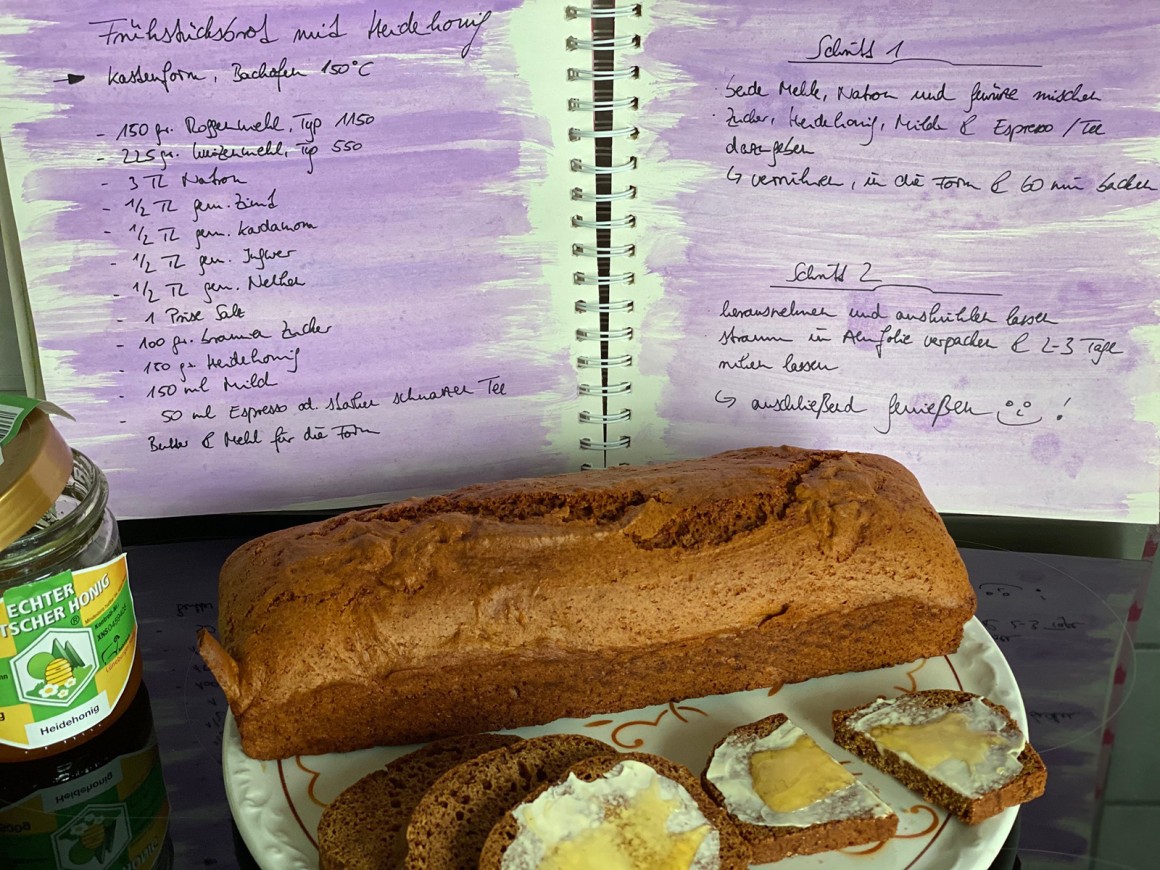 Frühstücksbrot mit Heidehonig
→ Kastenform, Backofen 150°C
- 150 gr. Roggenmehl, Typ 1150
- 225 gr. Weizenmehl, Typ 550
- 3 TL Natron
- 1/2 TL gem. Zimt
- 1/2 TL gem. Kardamom
- 1/2 TL gem. Ingwer
- 1/2 TL gem. Nelken
- 1 Prise Salz
- 100 gr. brauner Zucker
- 150 gr. Heidehonig
- 150 ml Milch
- 50 ml Espresso od. starker schwarzer Tee
Butter & Mehl für die Form
Schritt 1
· beide Mehle, Natron und Gewürze mischen
· Zucker, Heidehonig, Milch & Espresso / Tee
dazugeben
↳ verrühren, in die Form & 60 min backen
Schritt 2
· herausnehmen und auskühlen lassen
· stramm in Alufolie verpacken & 2-3 Tage
ruhen lassen
↳ anschließend genießen !
ECHTER
TSCHER HONIG
Heidehonig